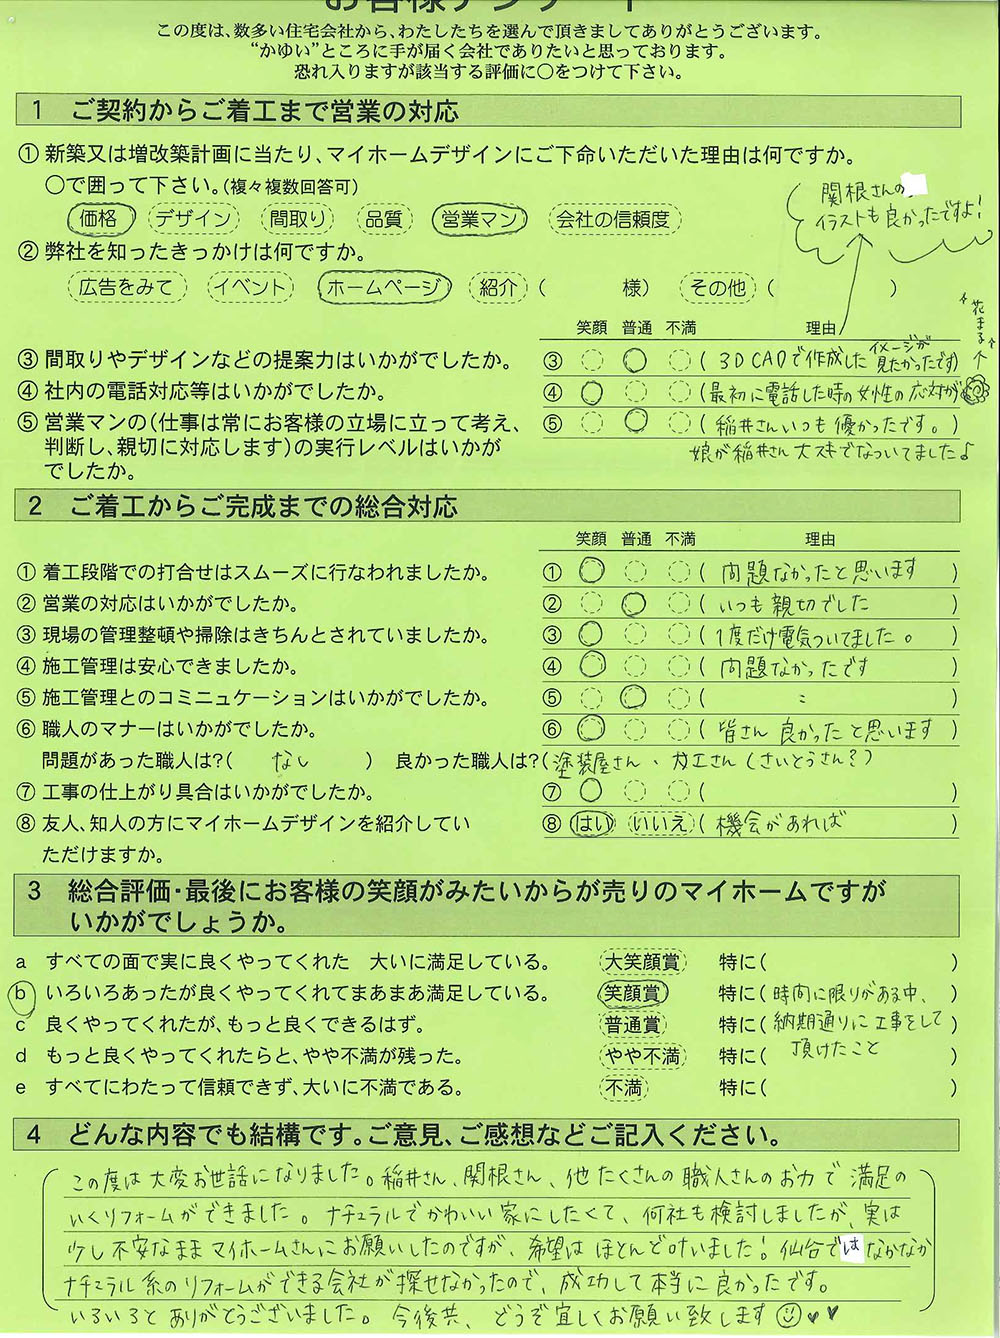 お客様アンケート
この度は、数多い住宅会社から、わたしたちを選んで頂きましてありがとうございます。
“かゆい”ところに手が届く会社でありたいと思っております。
恐れ入りますが該当する評価に〇をつけて下さい。
1 ご契約からご着工まで営業の対応
① 新築又は増改築計画に当たり、マイホームデザインにご下命いただいた理由は何ですか。
〇で囲って下さい。(複々複数回答可)
関根さんの
イラストも良かったですよ!
価格 デザイン 間取り 品質 営業マン 会社の信頼度
② 弊社を知ったきっかけは何ですか。
広告をみて イベント ホームページ 紹介 ( 様) その他 ( )
花まる
笑顔 普通 不満 理由
③ 間取りやデザインなどの提案力はいかがでしたか。 ③ (3D CADで作成したイメージが見たかったです)
④ 社内の電話対応等はいかがでしたか。 ④ (最初に電話した時の女性の応対が
⑤ 営業マンの(仕事は常にお客様の立場に立って考え、 ⑤ (稲井さんいつも優かったです。)
判断し、親切に対応します)の実行レベルはいかが 娘が稲井さん大スキでなついてました♪
でしたか。
2 ご着工からご完成までの総合対応
笑顔 普通 不満 理由
① 着工段階での打合せはスムーズに行なわれましたか。 ① (問題なかったと思います)
② 営業の対応はいかがでしたか。 ② (いつも親切でした)
③ 現場の管理整頓や掃除はきちんとされていましたか。 ③ (1度だけ電気ついてました。)
④ 施工管理は安心できましたか。 ④ (問題なかったです)
⑤ 施工管理とのコミニュケーションはいかがでしたか。 ⑤ ( 〃 )
⑥ 職人のマナーはいかがでしたか。 ⑥ (皆さん良かったと思います)
問題があった職人は?( なし ) 良かった職人は?(塗装屋さん、大工さん(さいとうさん?))
⑦ 工事の仕上がり具合はいかがでしたか。 ⑦ ( )
⑧ 友人、知人の方にマイホームデザインを紹介してい ⑧ はい いいえ (機会があれば)
ただけますか。
3 総合評価・最後にお客様の笑顔がみたいからが売りのマイホームですが
いかがでしょうか。
a すべての面で実に良くやってくれた 大いに満足している。 大笑顔賞 特に( )
b いろいろあったが良くやってくれてまあまあ満足している。 笑顔賞 特に(時間に限りがある中、)
c 良くやってくれたが、もっと良くできるはず。 普通賞 特に(納期通りに工事をして)
d もっと良くやってくれたらと、やや不満が残った。 やや不満 特に( 頂けたこと )
e すべてにわたって信頼できず、大いに不満である。 不満 特に( )
4 どんな内容でも結構です。ご意見、ご感想などご記入ください。
この度は大変お世話になりました。稲井さん、関根さん、他たくさんの職人さんのお力で満足の
いくリフォームができました。ナチュラルでかわいい家にしたくて、何社も検討しましたが、実は
少し不安なままマイホームさんにお願いしたのですが、希望はほとんど叶いました!仙台ではなかなか
ナチュラル系のリフォームができる会社が探せなかったので、成功して本当に良かったです。
いろいろとありがとうございました。今後共、どうぞ宜しくお願い致します☺♥♥